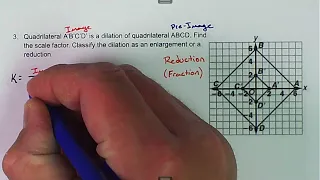 Image
Pre-Image
3. Quadrilateral A'B'C'D' is a dilation of quadrilateral ABCD. Find
the scale factor. Classify the dilation as an enlargement or a
reduction.
Reduction
(Fraction)
K =
y
x
A
B
C
D
A'
6
4
2
-2
-4
-6